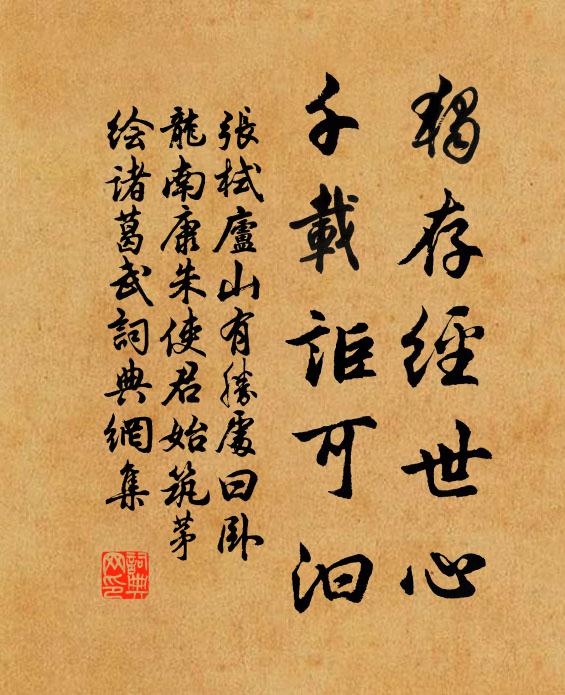 獨存經世心
千載詎可汩
張栻廬山有勝處曰卧
龍南康朱使君始筑茅
绘诸葛武詞典網集
詞典網印